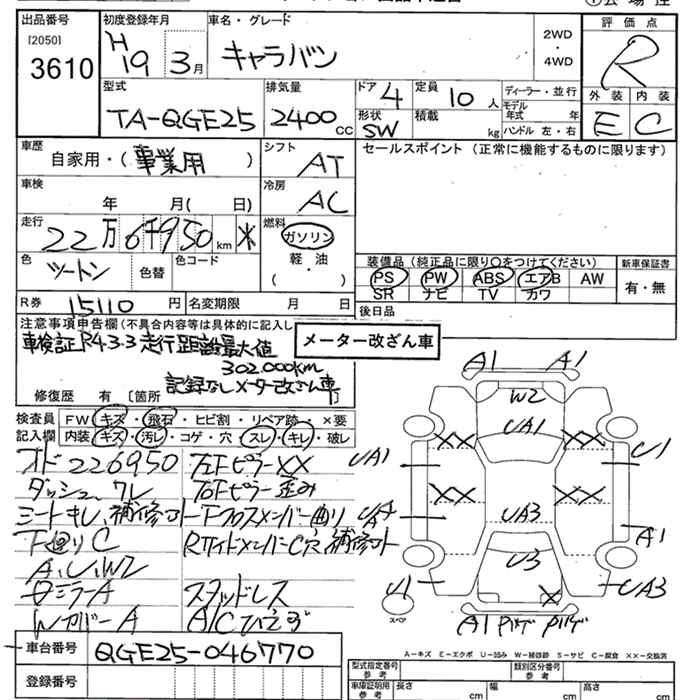 出品番号
[2050]
3610
初度登録年月
H19 3月
車名・グレード
キャラバン
2WD・4WD
評価点
R
外装 内装
E C
型式
TA-QGE25
排気量
2400 CC
ドア 4
形状 SW
定員 10 人
積載 kg
ディーラー・並行
モデル年式 年
ハンドル 左・右
車歴
自家用・(事業用)
シフト
AT
セールスポイント (正常に機能するものに限ります)
車検
年 月( 日)
冷房
AC
走行
22万6千950km ※
燃料
ガソリン
軽・油
( )
色
ツートン
色替
色コード
装備品 (純正品に限り○をつけてください)
PS PW ABS エアB AW
SR ナビ TV カワ
新車保証書
有・無
R券
15110円
名変期限 月 日
後日品
注意事項申告欄 (不具合内容等は具体的に記入し
メーター改ざん車
車検証R4.3.3走行距離最大値
302.000km
記録なしメーター改ざん車
修復歴 有 〔箇所 〕
検査員記入欄
FW キズ・飛石・ヒビ割・リペア跡・×要
内装 キズ・汚レ・コゲ・穴・スレ・キレ・破レ
オド226950
左FピラーXX
ダッシュワレ
右Fピラー歪み
シートキレ、補修コト
Fクロスメンバー曲り
下廻りC
Rサイドメンバー C穴 補修コト
A、U、W2
スタッドレス
ミラーA
WカバーA
A/Cひえず
A1
A1
W2
UA1
XX
XX
UA1
U1
XX
XX
UA3
A1
U3
U1
X
UA3
スペア
A1 Pハゲ Pハゲ
A-キズ E-エクボ U-凹み W-補修跡 S-サビ C-腐食 XX-交換済
車台番号
QGE25-046770
登録番号
型式指定番号 参考
類別区分番号 参考
車庫証明用 参考
長さ cm
幅 cm
高さ cm